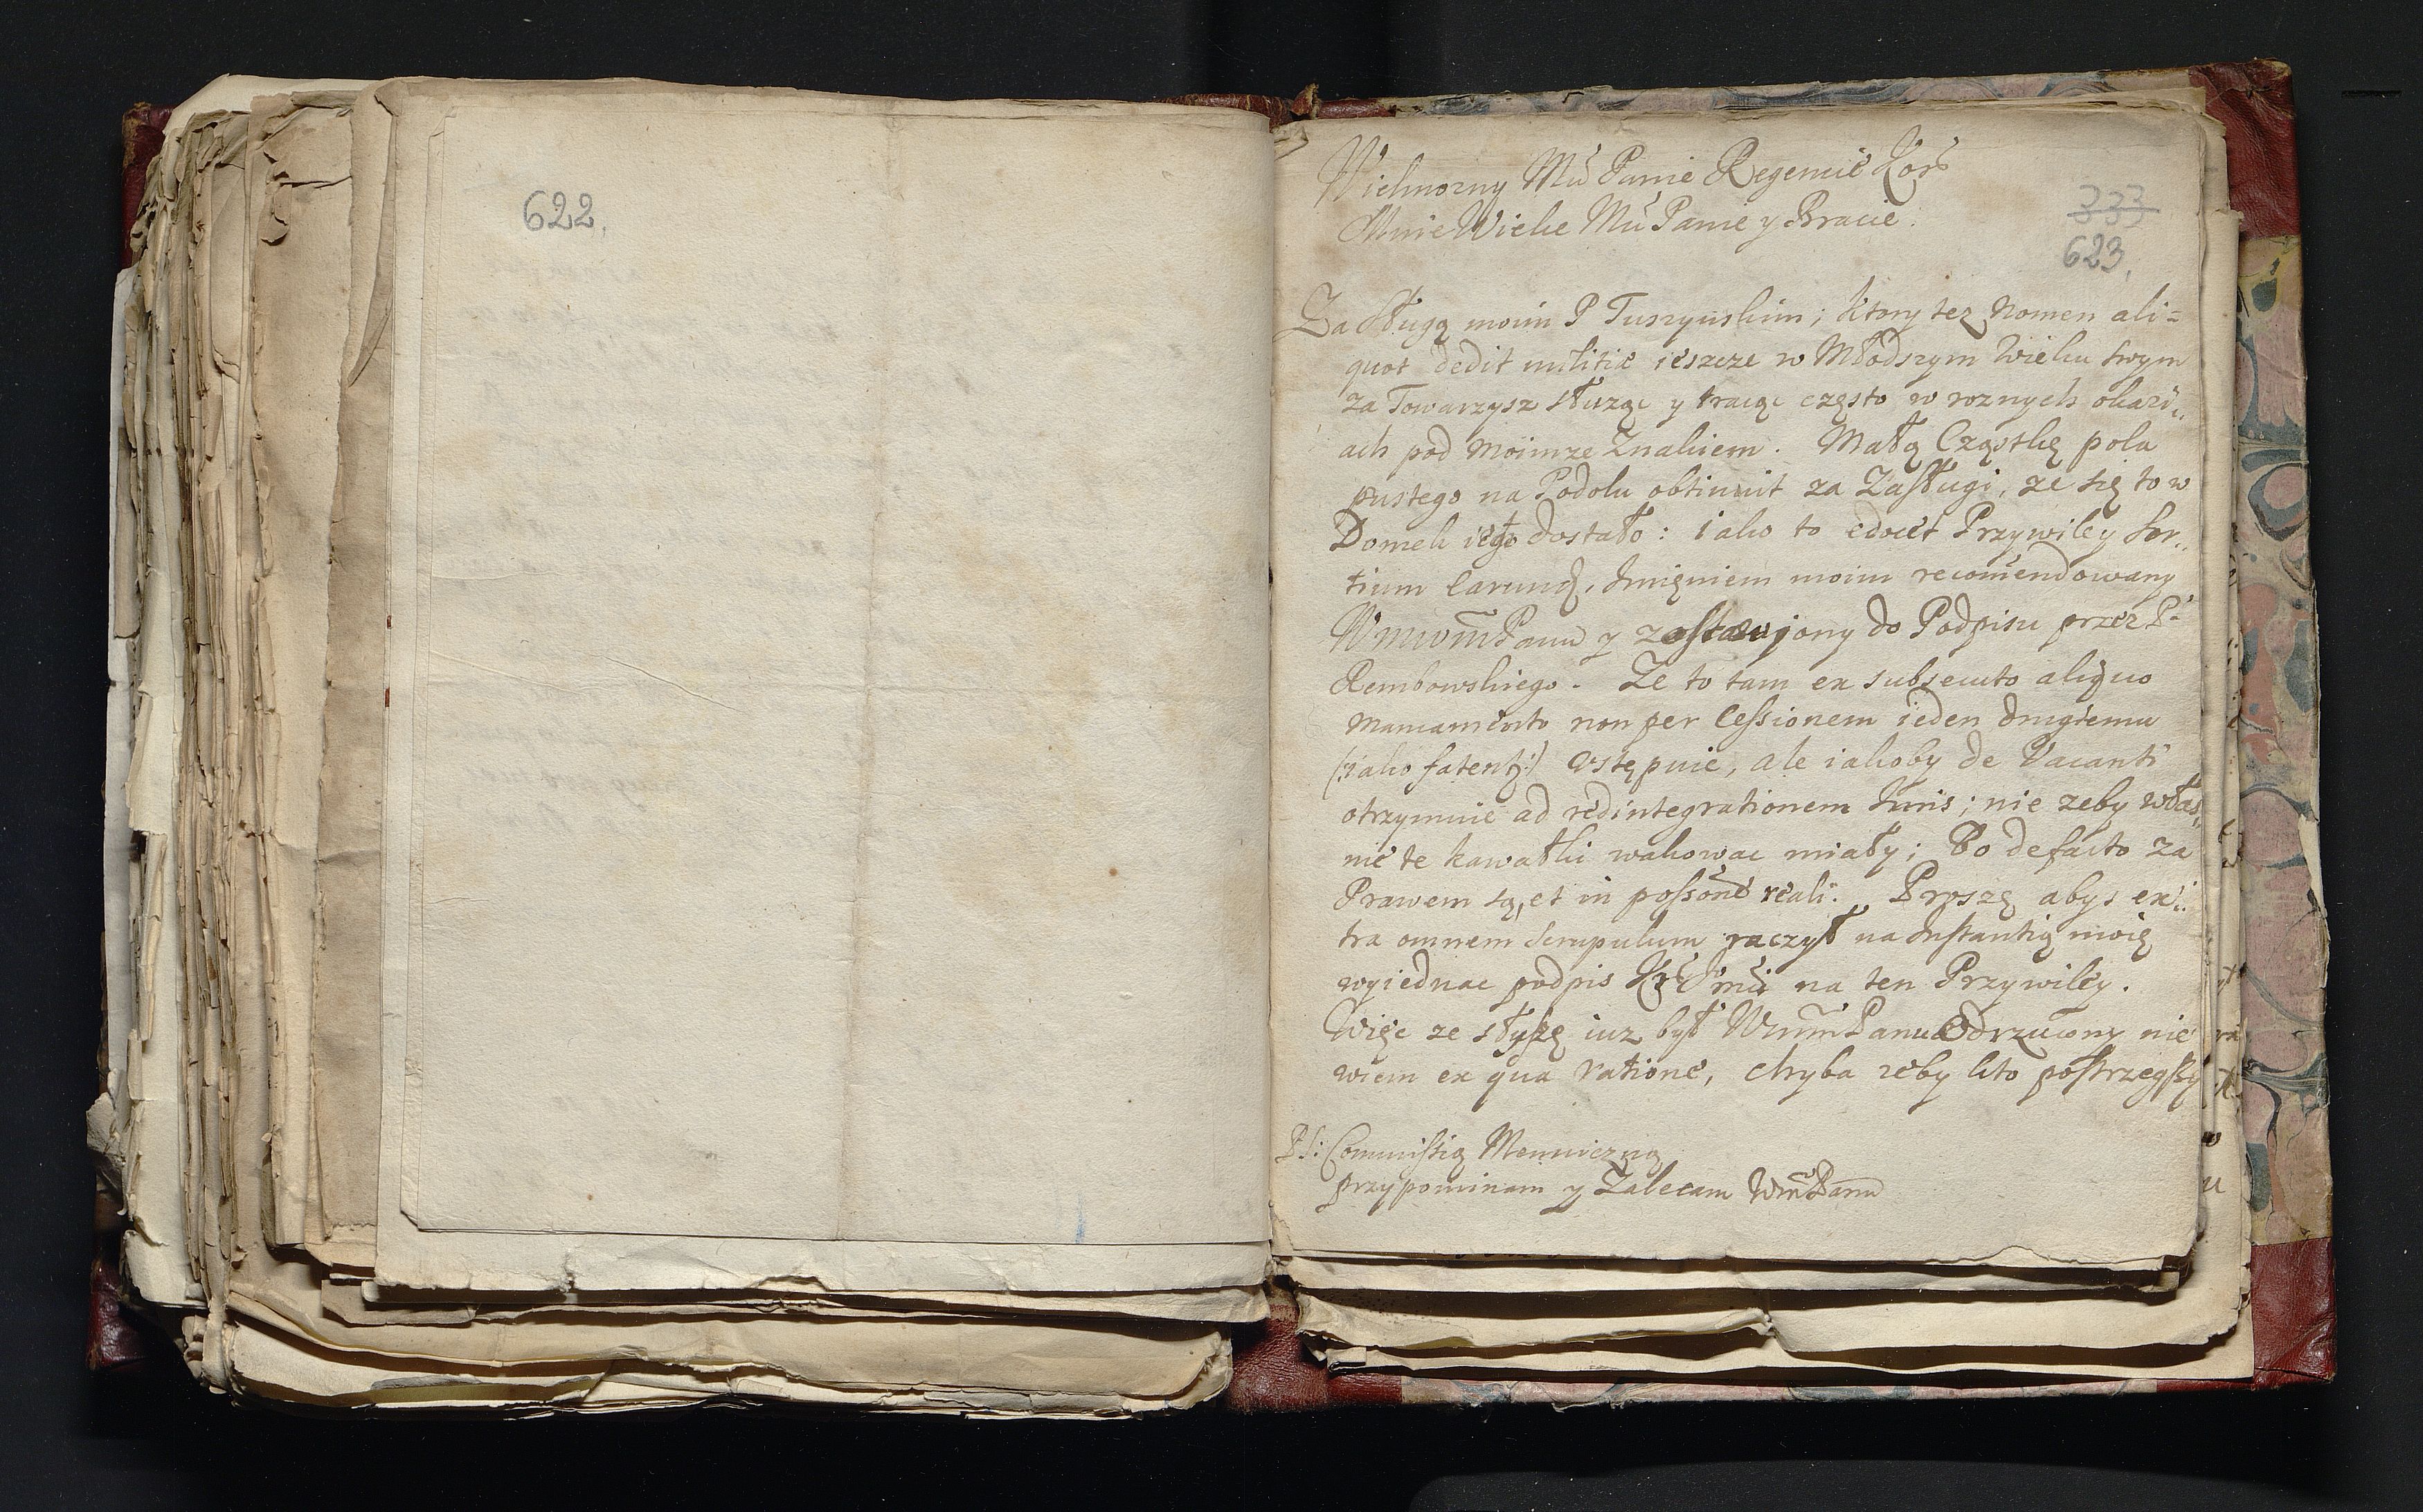 622.
Wielmozny Mci Panie Regencie Kor̃
Mnie Wielce Mci Panie y Bracie.
333
623.
Za Sługą moim P Tuszynskim; ktory tez Nomen ali=
quot dedit militiæ ieszcze w Młodszym Wieku swym
za Towarzysz słuząc y tracąc często w roznych okazi„
ach pod Moimze Znakiem. Małą Cząstkę pola
pustego na Podolu obtinuit za Zasługi, ze się to w
Domek iego dostało: iako to edocet Przywiley Sor„
tium earund. Imięniem moim recom̃endowany
Panu y zostawiony do Podpisu przez P.
Rembowskiego. Ze to tam ex subsecuto aliquo
non per Cessionem ieden drugiemu
(:iako fatent:) Vstępuie, ale iakoby de Vacanti
otrzymuie ad redintegrationem Iuris; nie zeby włas„
nie te kawałki wakowac miały; Bo de facto za
Prawem są, et in possone reali. Proszę abys ex„
tra omnem Scrupulum raczył na Instantią moię
wyiednac podpis na ten Przywiley.
Więc ze słyszę iuz był Panu Odrzucony nie
wiem ex qua ratione, chyba zeby kto postrzegszy
PS: Commissią Menniczną
przypominam y Zalecam WmPanu